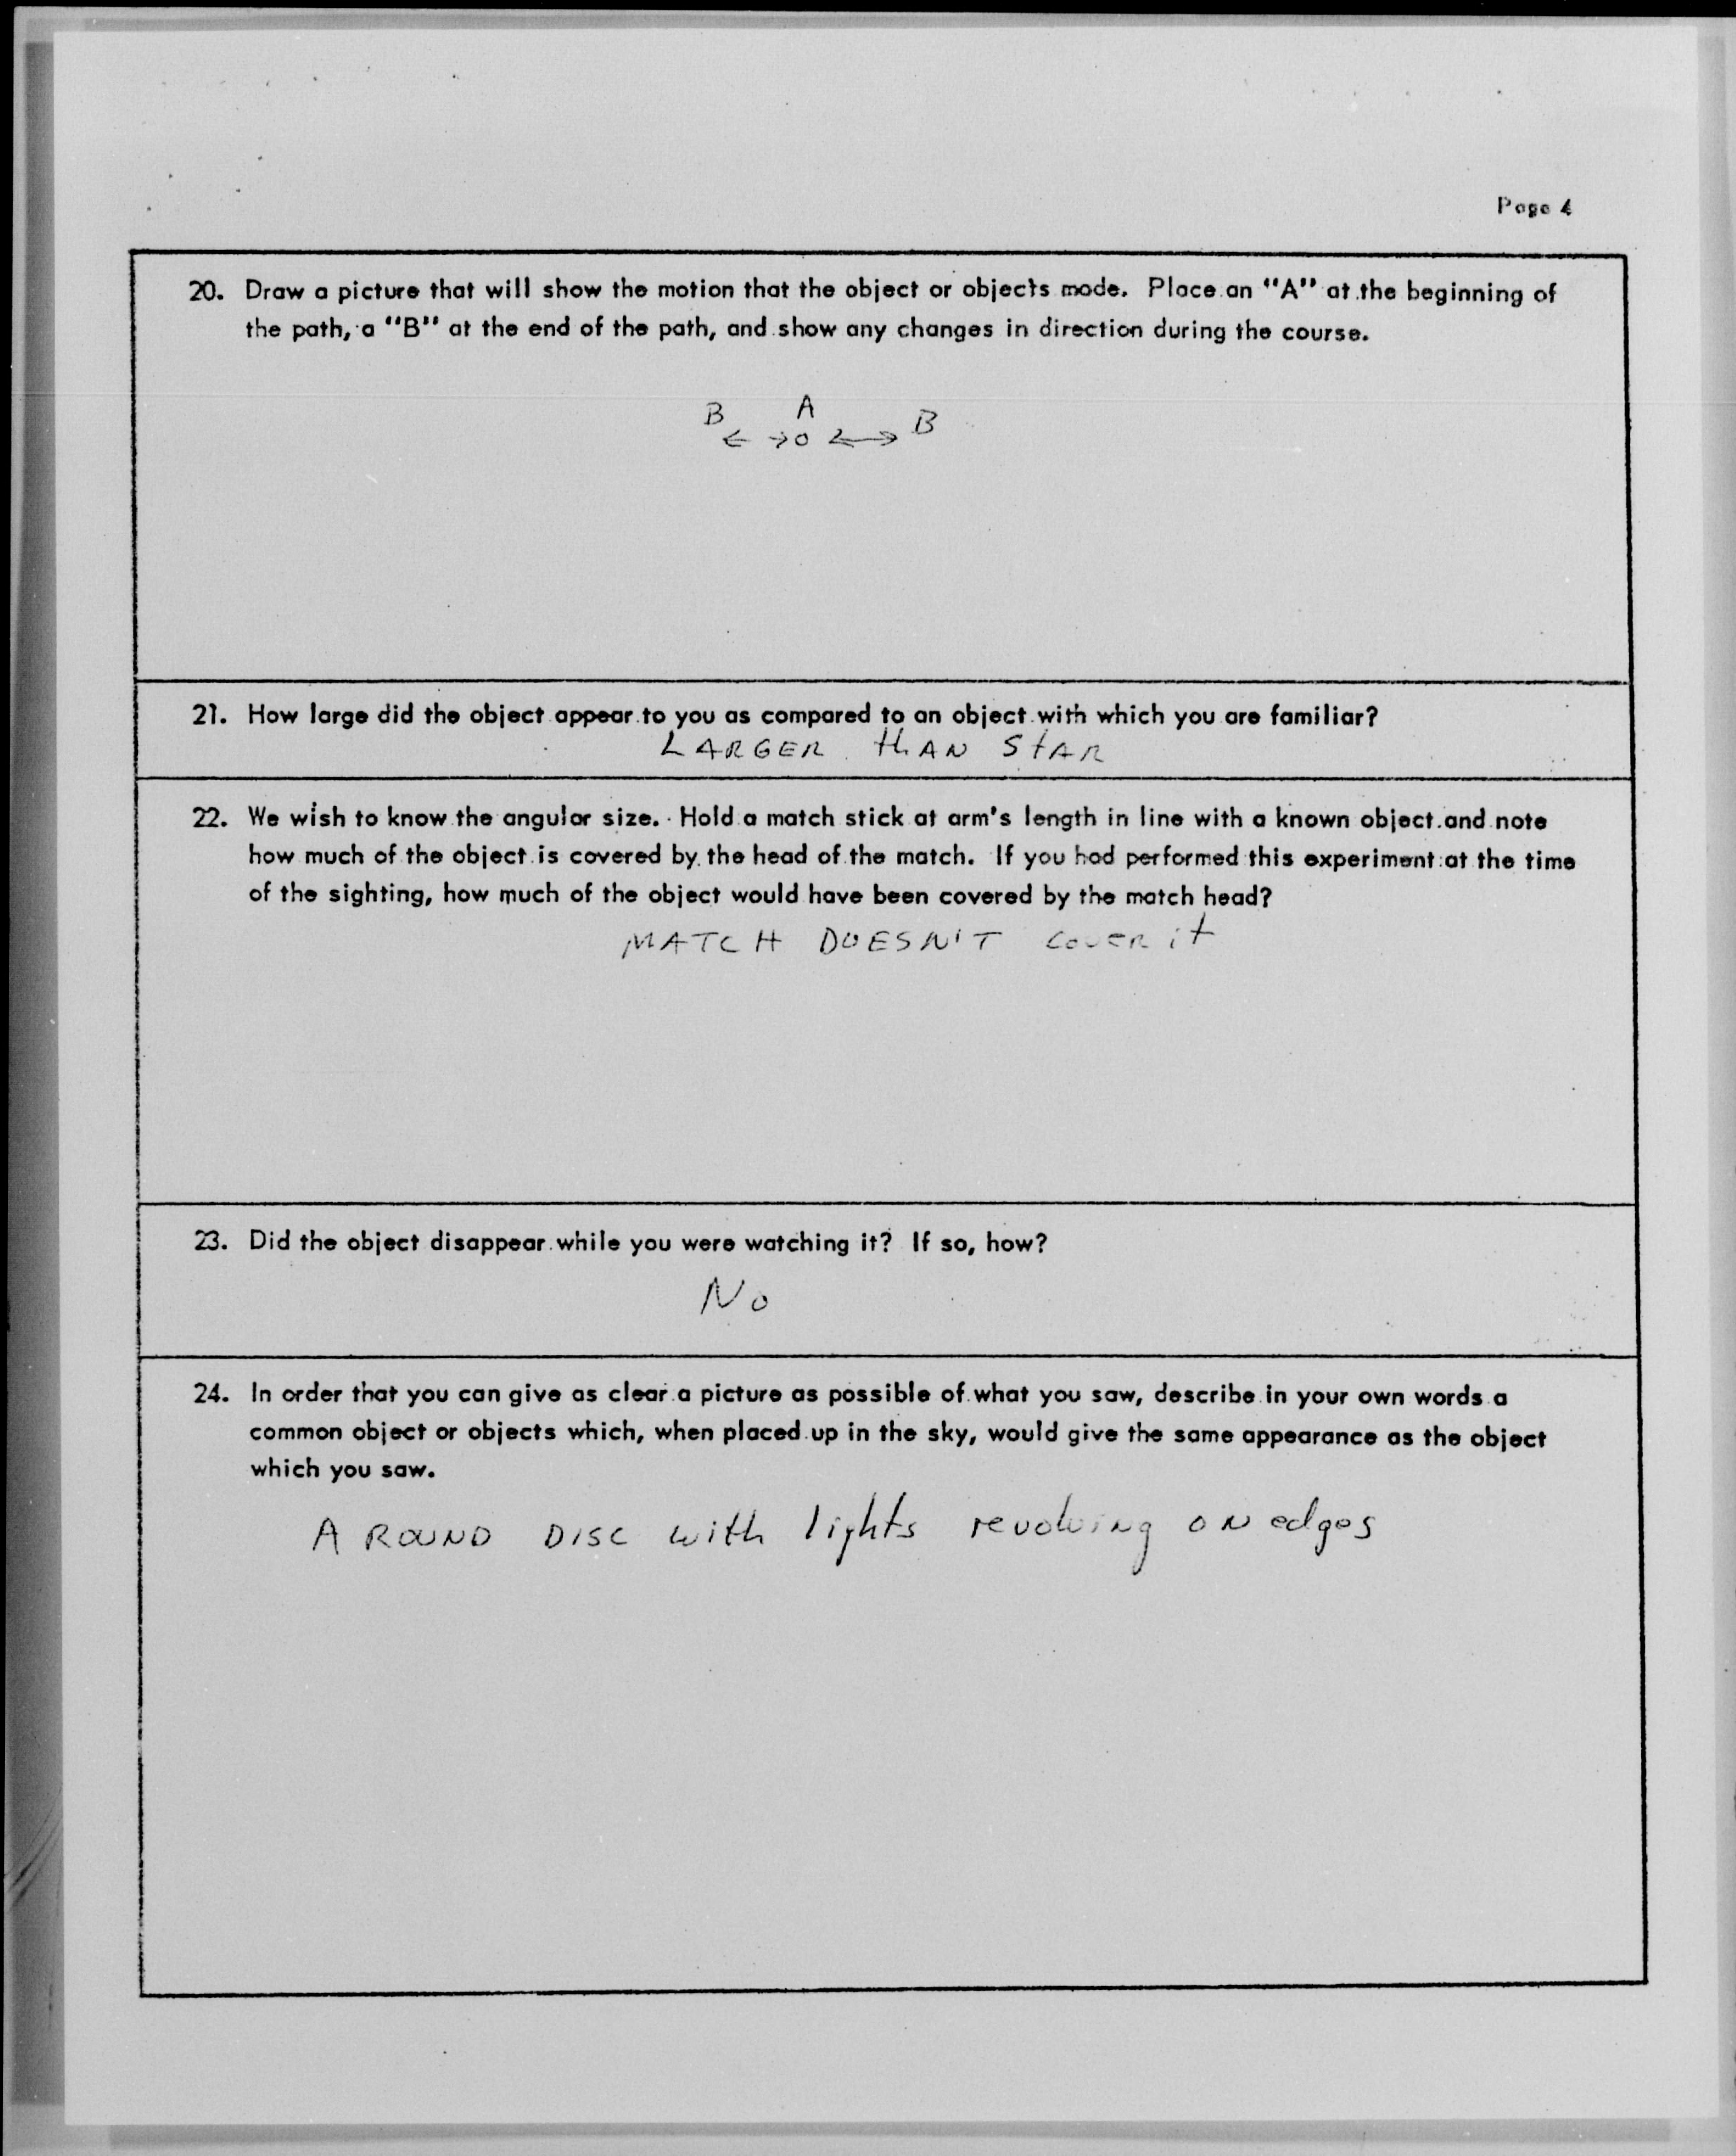 Page 4
20. Draw a picture that will show the motion that the object or objects made. Place an "A" at the beginning of
the path, a "B" at the end of the path, and show any changes in direction during the course.
B A B
← →o ←→
21. How large did the object appear to you as compared to an object with which you are familiar?
LARGER thAN StAR
22. We wish to know the angular size. Hold a match stick at arm's length in line with a known object and note
how much of the object is covered by the head of the match. If you had performed this experiment at the time
of the sighting, how much of the object would have been covered by the match head?
MATCH DOESN'T COVER it
23. Did the object disappear while you were watching it? If so, how?
No
24. In order that you can give as clear a picture as possible of what you saw, describe in your own words a
common object or objects which, when placed up in the sky, would give the same appearance as the object
which you saw.
A ROUND DISC with lights revolving ON edges